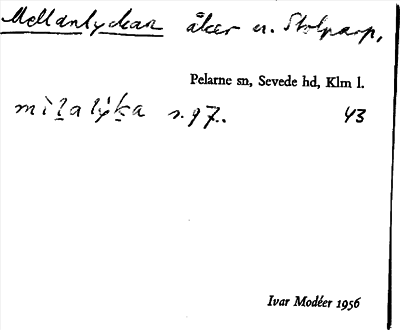 Mellanlyckan åker n. Stolparp,
Pelarne sn, Sevede hd, Klm l.
mìl̠alýk̠a s. 97. 43
Ivar Modéer 1956